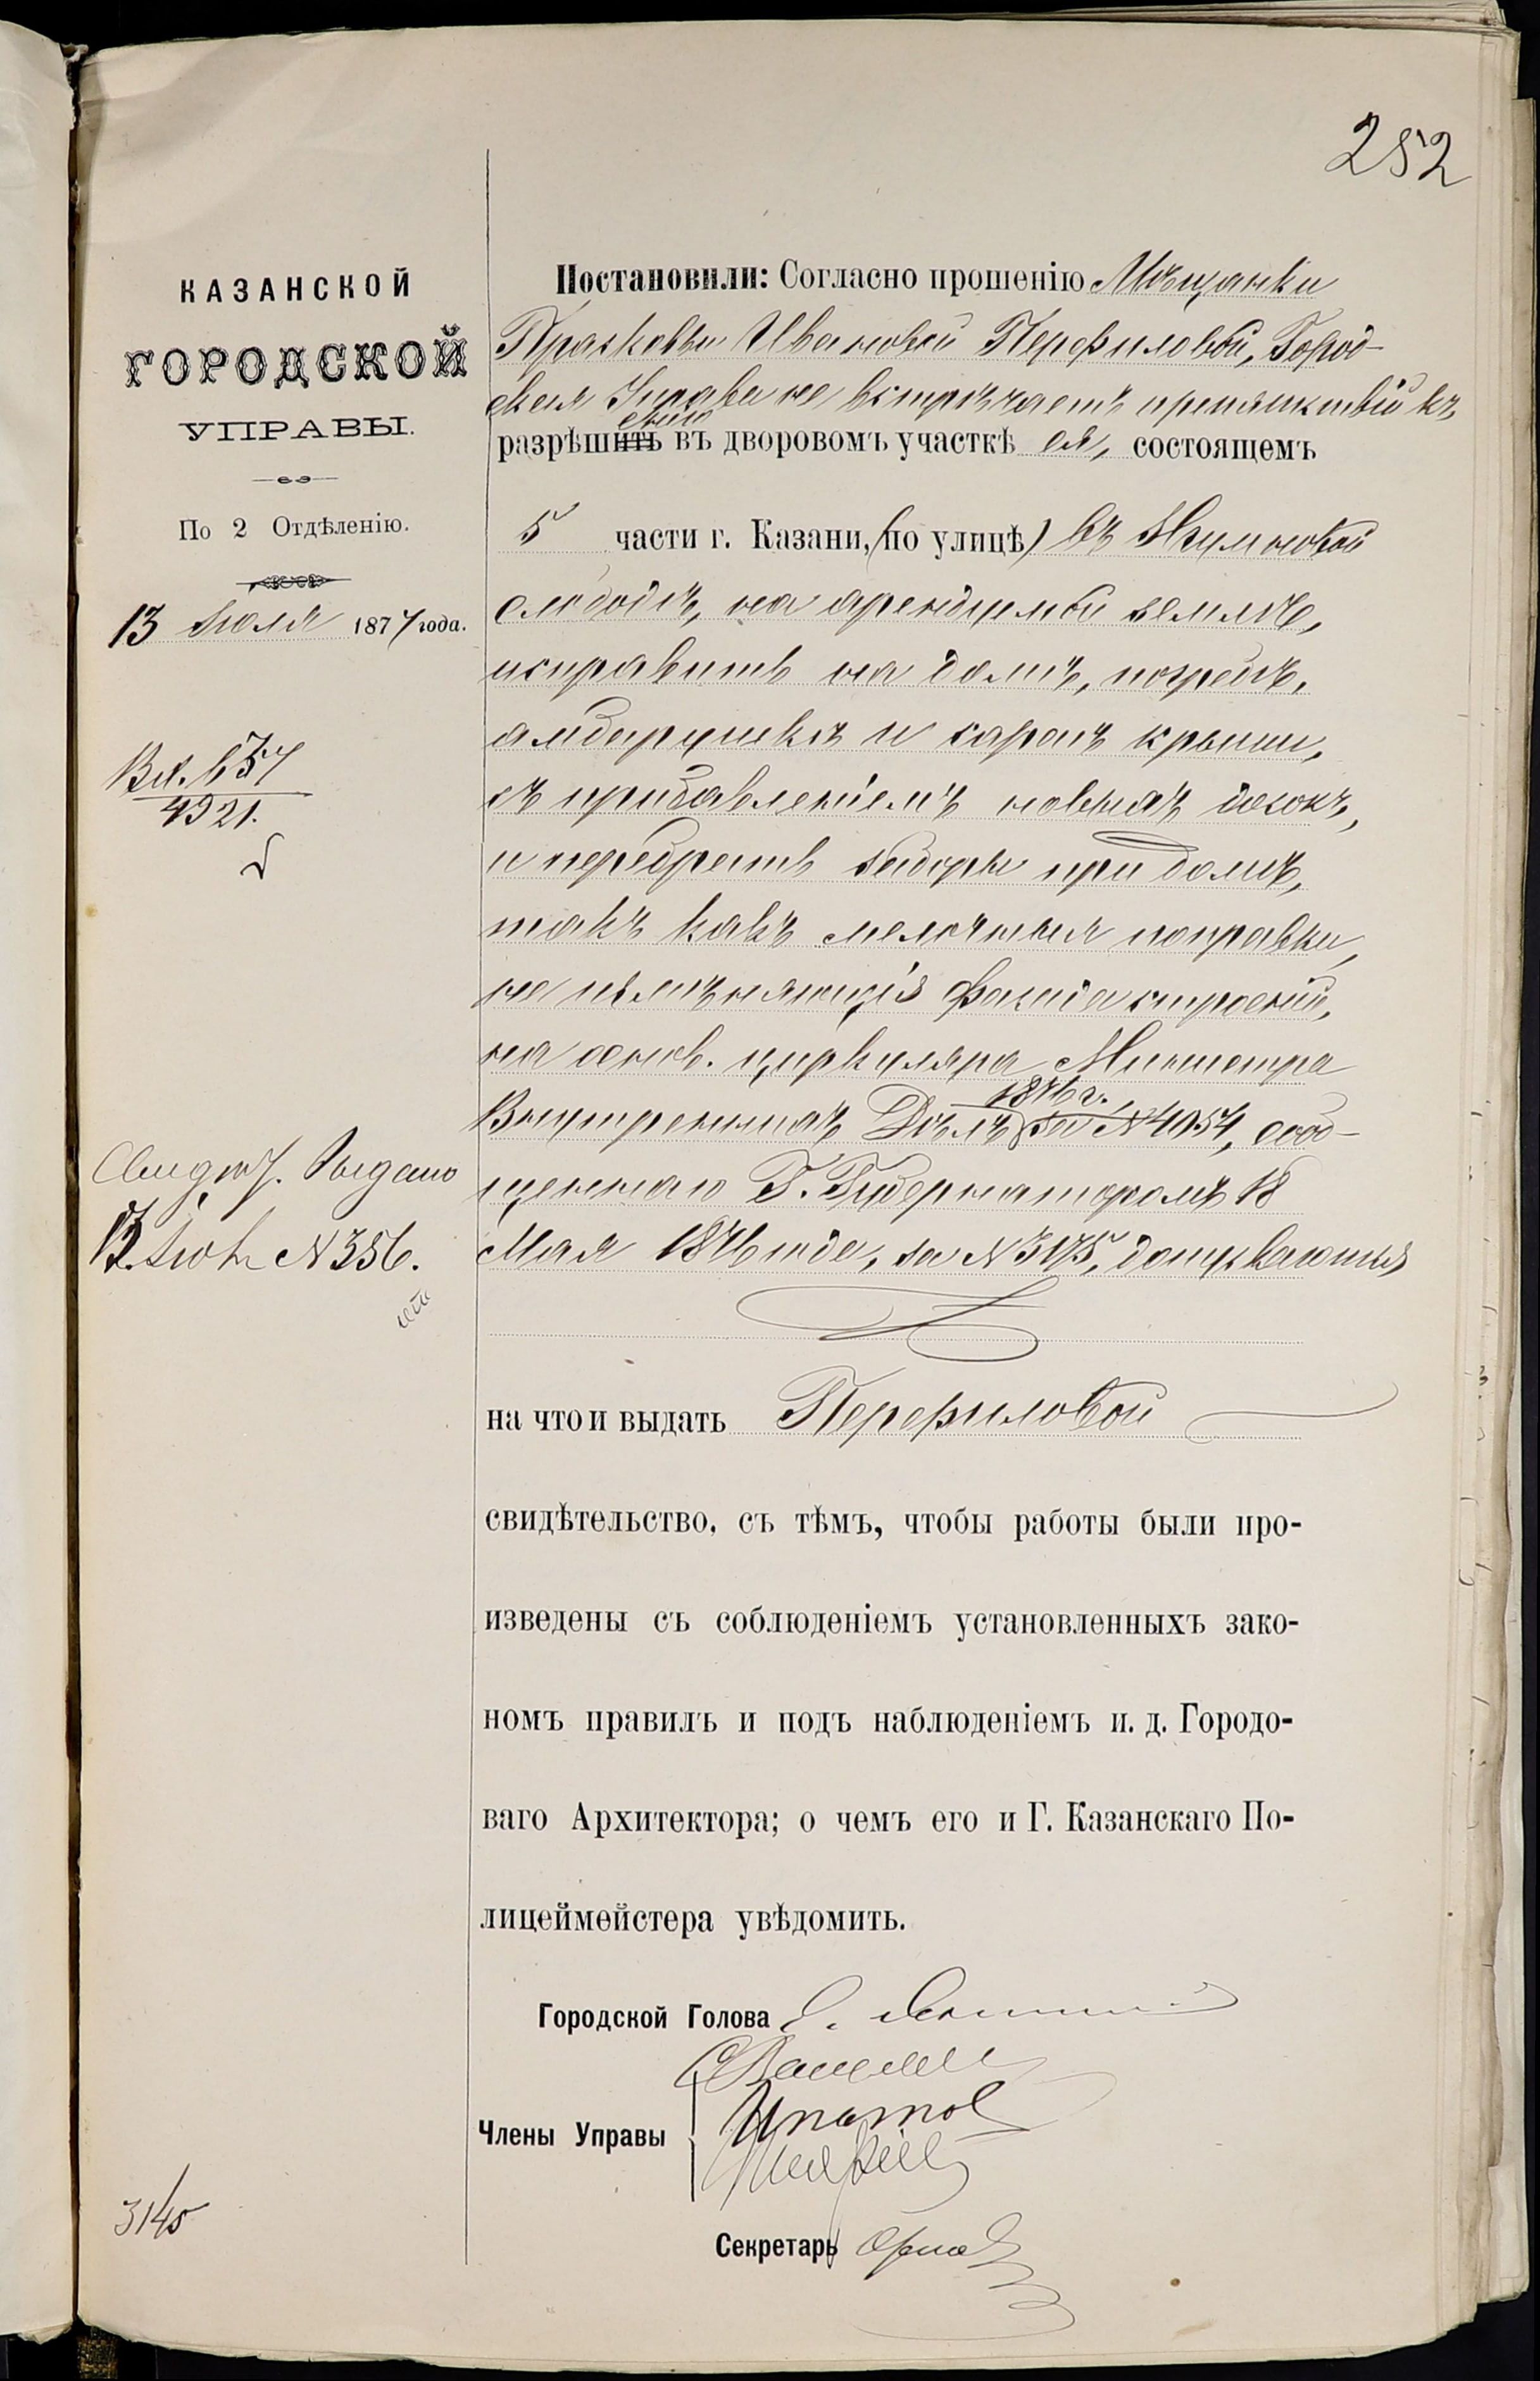 252
КАЗАНСКОЙ
ГОРОДСКОЙ
УПРАВЫ.
По 2 Отдѣленію.
13 Іюля 1877 года.
Вх. 657
4921.
Свидѣт. Выдано
13 Іюля N 356.
3145
Постановили: Согласно прошенію Мѣщанки
Прасковьи Ивановой Перфиловой, Город-
ская Управа не встрѣчаетъ препятствій къ
разрѣшенію въ дворовомъ участкѣ ея, состоящемъ
5 части г. Казани, (по улицѣ) въ Ягимовой
слободѣ, на арендуемой землѣ,
исправить на домѣ, погребѣ,
амбарушкѣ и сараѣ крыши,
съ прибавленіемъ новыхъ досокъ,
и перебрать заборы при домѣ,
такъ какъ мелочныя поправки,
не измѣняющія фасада строеній,
на основ. циркуляра Министра
Внутреннихъ Дѣлъ 1876 г. за N 4054, сооб-
щеннаго Г. Губернаторомъ 18
Мая 1876 года, за N 3175, допускаются
на что и выдать Перфиловой
свидѣтельство, съ тѣмъ, чтобы работы были про-
изведены съ соблюденіемъ установленныхъ зако-
номъ правилъ и подъ наблюденіемъ и. д. Городо-
ваго Архитектора; о чемъ его и Г. Казанскаго По-
лицеймейстера увѣдомить.
Городской Голова
Члены Управы
Ипатов
Секретарь